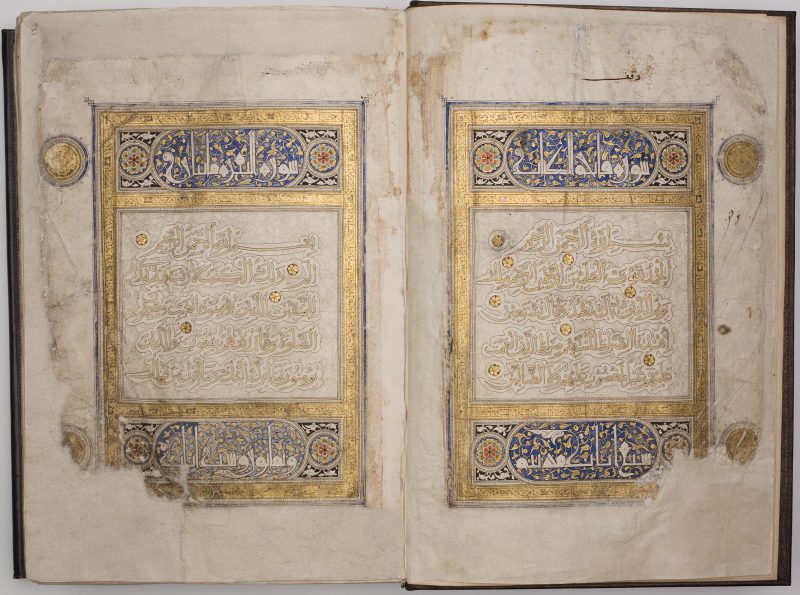 وقف
سورة فاتحة الكتاب
بسم الله الرحمن الرحيم
الحمد لله رب العلمين الرحمن الرحيم ملك
يوم الدين اياك نعبد واياك نستعين
اهدنا الصراط المستقيم صراط الذين انعمت
عليهم غير المغضوب عليهم ولا الضالين
سبع ايات
سورة البقرة مائتان
بسم الله الرحمن الرحيم
الم ذلك الكتب لا ريب فيه هدى
للمتقين الذين يؤمنون بالغيب ويقيمون
الصلوة ومما رزقنهم ينفقون والذين
يؤمنون بما انزل اليك وما انزل من قبلك
وثمانون وست ايات